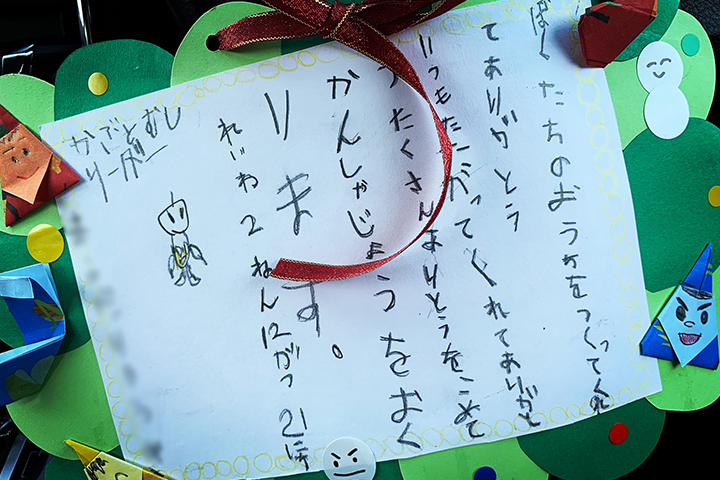 ぼくたちのおうちをつくってくれ
てありがとう
いつもたたかってくれてありがと
うたくさんありとうをこめて
かんしゃじょうをおく
ります。
れいわ2ねん12がつ21にち
かぶとむし
リーダー